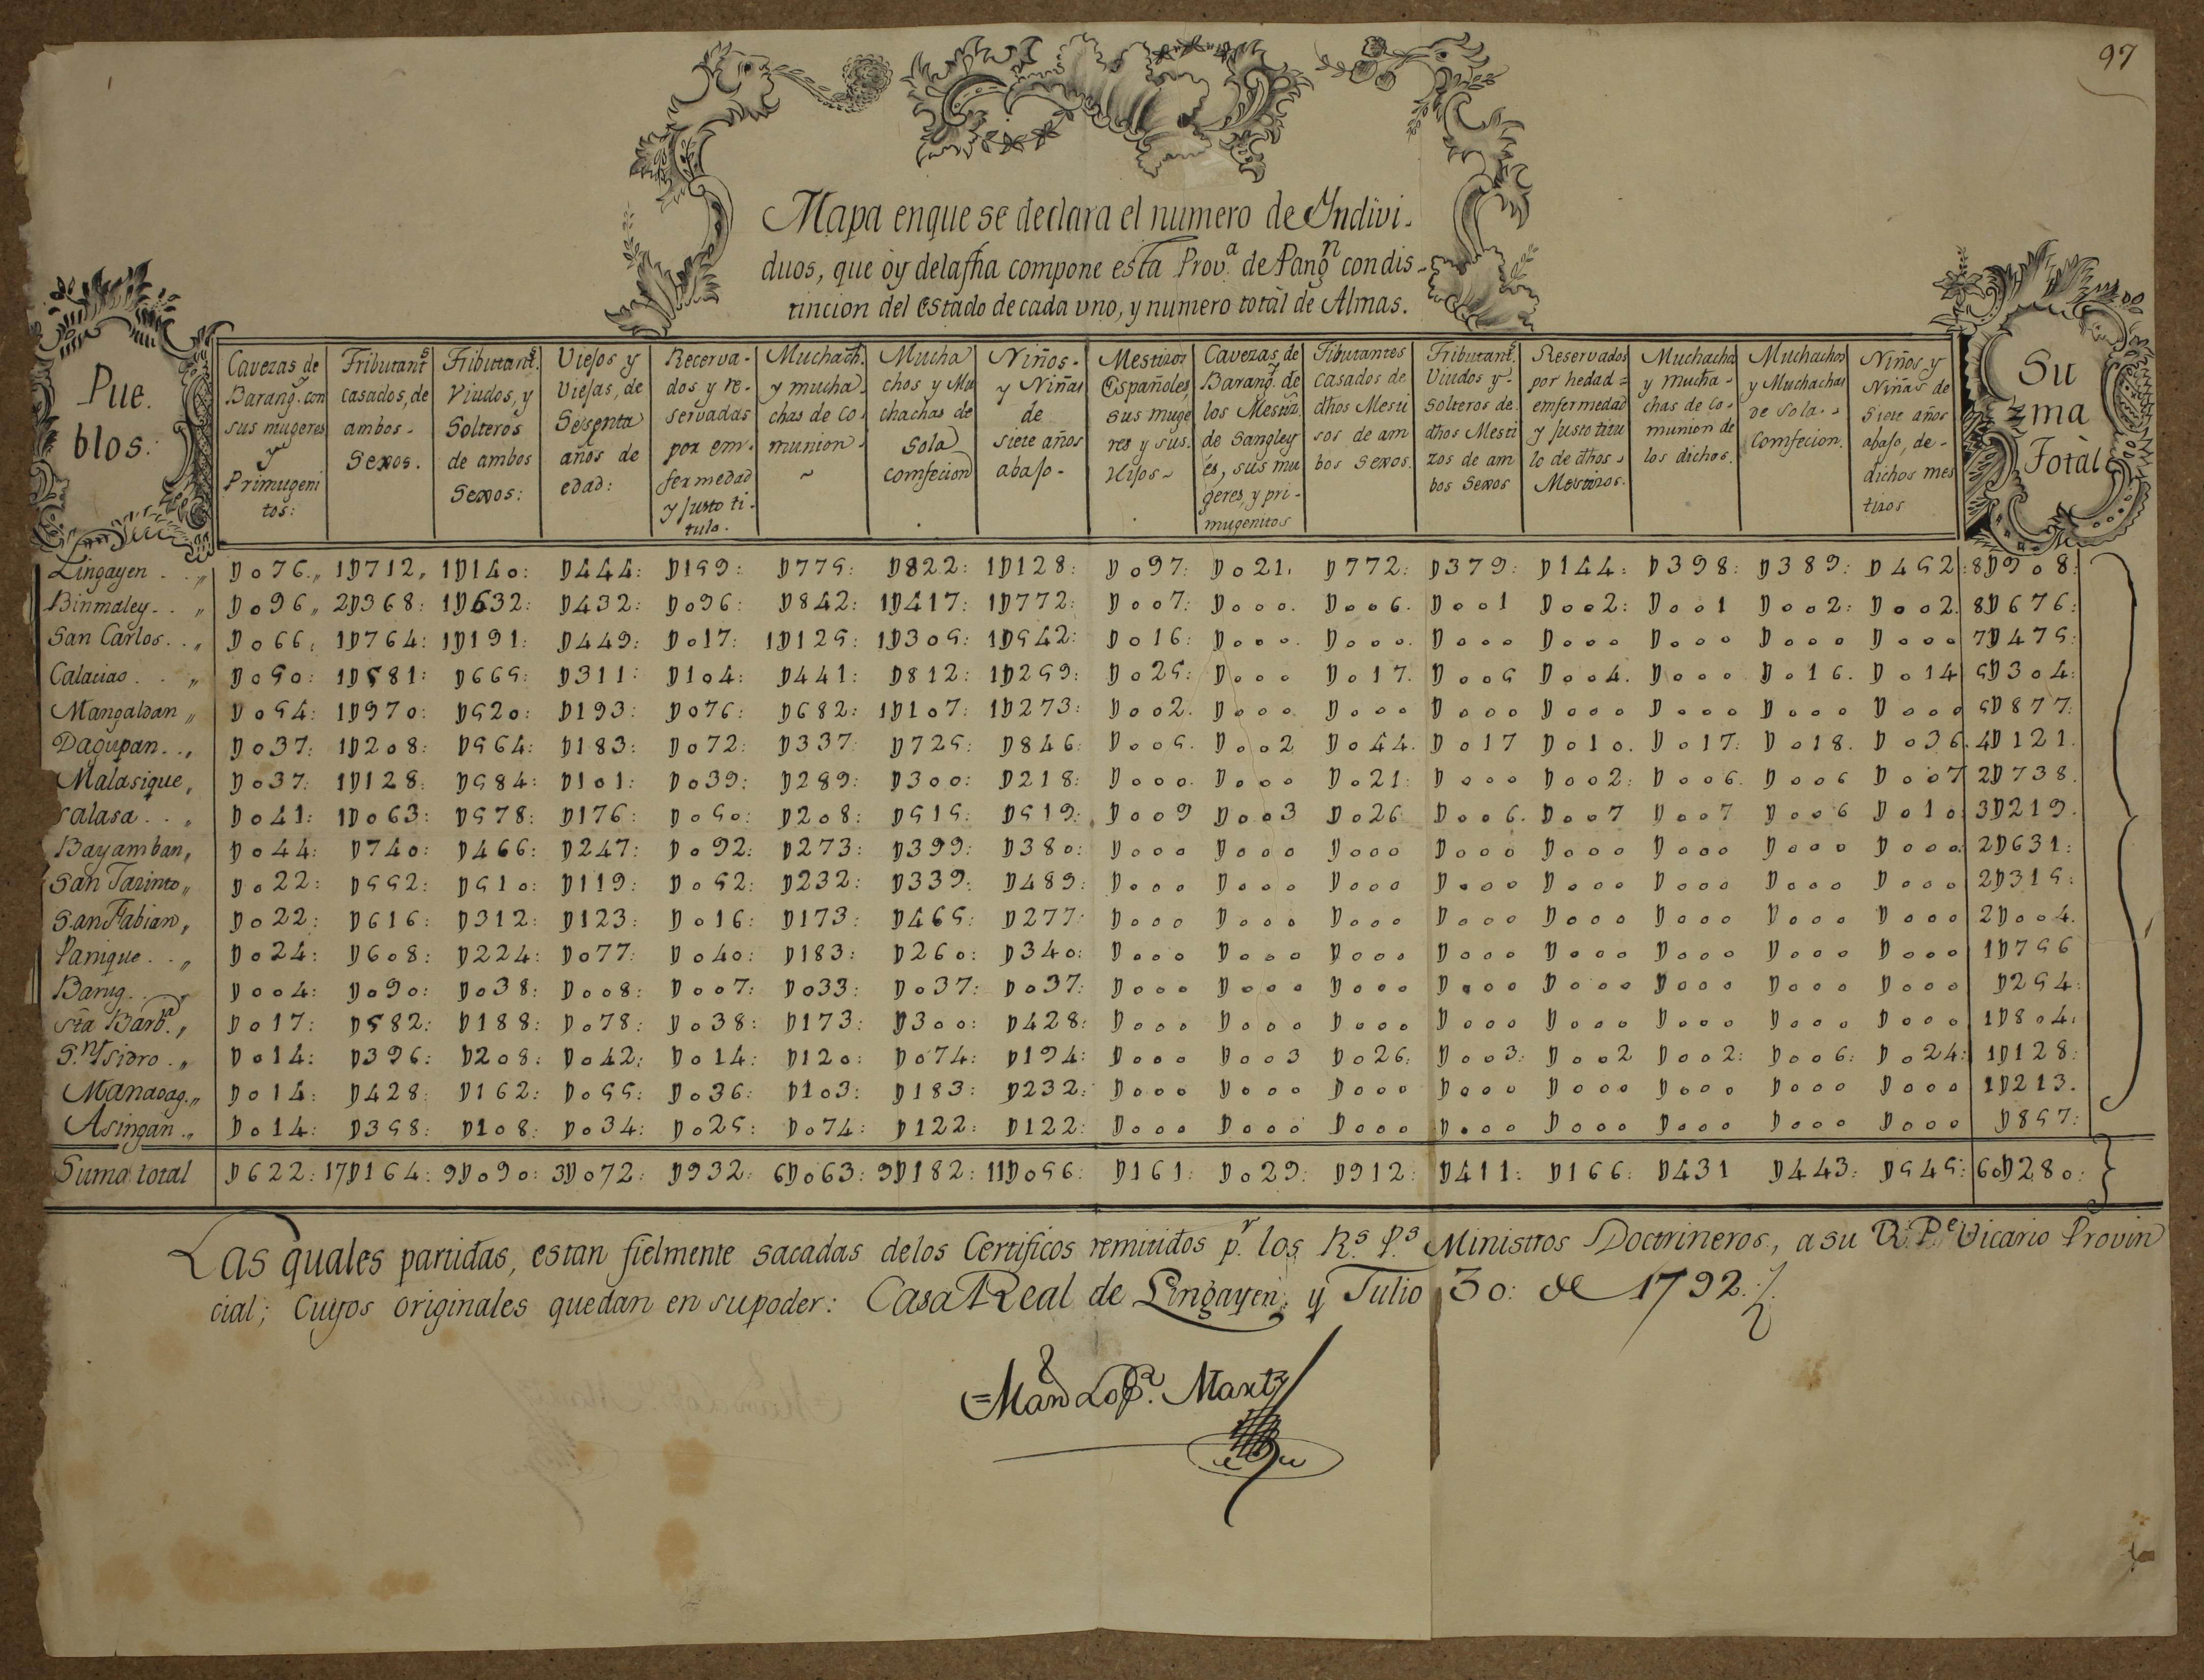 97
Mapa enque se declara el numero de Yndivi-
duos, que oy delafha compone esta Prov.ª de Pang.n con dis-
tincion del estado de cada uno, y numero totàl de Almas.
Pue.
blos:
Cavezas de
Barang.y con
sus mugeres
y
Primugeni
tos:
Tributant.s
casados, de
ambos-
Sexos.
Tributant.s
Viudos, y
Solteros
de ambos
Sexos:
Viejos y
Viejas, de
Sesenta
años de
edad:
Recerva-
dos y re-
servadas
por em-
fermedad
y justo ti-
tulo.
Muchach.s
y mucha
chas de co-
munion.
~
Mucha
chos y Mu
chachas de
Sola
comfecion
Niños-
y Niñas
de
siete años
abajo-
Mestizos
Españoles,
sus muge
res y sus
Hijos~
Cavezas de
Barang.y de
los Mestiz.s
de Sangley
es, sus mu
geres, y pri-
mugenitos
Tibutantes
casados de
dhos Mesti
sos de am
bos sexos.
Tributant.s
Viudos y
Solteros de
dhos Mesti
zos de am
bos sexos
Reservados
por hedad=
emfermedad
y justo titu
lo de dhos
Mestizos.
Muchachos
y mucha-
chas de co-
munion de
los dichos.
Muchachos
y Muchachas
de sola
Comfecion.
Niños y
Niñas de
siete años
abajo, de-
dichos mes
tizos
Su
ma
Totàl
Lingayen . . „ D076„ 1D712, 1D140: D444: D159: D775: D822: 1D128: D097: D021. D772: D379: D144: D398: D389: D452: 8D908:
Binmaley . . „ D096„ 2D368: 1D632: D432: D096: D842: 1D417: 1D772: D007: D000. D006. D001 D002: D001 D002: D002. 8D676:
San Carlos . . „ D066: 1D764: 1D191: D449: D017: 1D125: 1D305: 1D542: D016: D000. D000. D000 D000 D000 D000 D000 7D475:
Calaciao . . „ D050: 1D581: D665: D311: D104: D441: D812: 1D259: D025: D000 D017. D005 D004. D000 D016. D014 5D304:
Mangaldan „ D054: 1D970: D520: D193: D076: D682: 1D107: 1D273: D002. D000 D000 D000 D000 D000 D000 D000 5D877:
Dagupan . . , D037: 1D208: D564: D183: D072: D337: D725: D846: D005. D002 D044. D017 D010. D017: D018. D036. 4D121.
Malasique, D037: 1D128: D584: D101: D039: D289: D300: D218: D000. D000 D021: D000 D002: D006. D006 D007 2D738.
Salasa . . „ D041: 1D063: D578: D176: D050: D208: D515: D519: D009 D003 D026 D006. D007 D007 D006 D010 3D219.
Bayamban, D044: D740: D466: D247: D092: D273: D399: D380: D000 D000 D000 D000 D000 D000 D000 D000. 2D631:
San Jazinto„ D022: D552: D510: D119: D052: D232: D339: D489: D000 D000 D000 D000 D000 D000 D000 D000 2D315:
San Fabian, D022: D616: D312: D123: D016: D173: D465: D277: D000 D000 D000 D000 D000 D000 D000 D000 2D004.
Panique . . „ D024: D608: D224: D077: D040: D183: D260: D340: D000 D000 D000 D000 D000 D000 D000 D000 1D756
Barug . . , D004: D090: D038: D008: D007: D033: D037: D037: D000 D000 D000 D000 D000 D000 D000 D000 D254:
Sta Barb.ª, D017: D582: D188: D078: D038: D173: D300: D428: D000 D000 D000 D000 D000 D000 D000 D000 1D804:
S.n Ysidro . „ D014: D396: D208: D042: D014: D120: D074: D194: D000 D003 D026: D003: D002 D002: D006: D024: 1D128:
Manaoag. „ D014: D428: D162: D055: D036: D103: D183: D232: D000 D000 D000 D000 D000 D000 D000 D000 1D213.
Asingan . „ D014: D358: D108: D034: D025: D074: D122: D122: D000 D000 D000 D000 D000 D000 D000 D000 D857:
Suma total D622: 17D164: 9D090: 3D072: D932: 6D063: 9D182: 11D056: D161: D029: D912: D411: D166: D431 D443: D545: 60D280:
Las quales partidas, estan fielmente sacadas delos Certificos remitidos p.r los R.s P.s Ministros Doctrineros, a su R. P.e Vicario Provin
cial; Cuyos originales quedan en supoder: Casa Real de Lingayen, y Julio 30: de 1792.